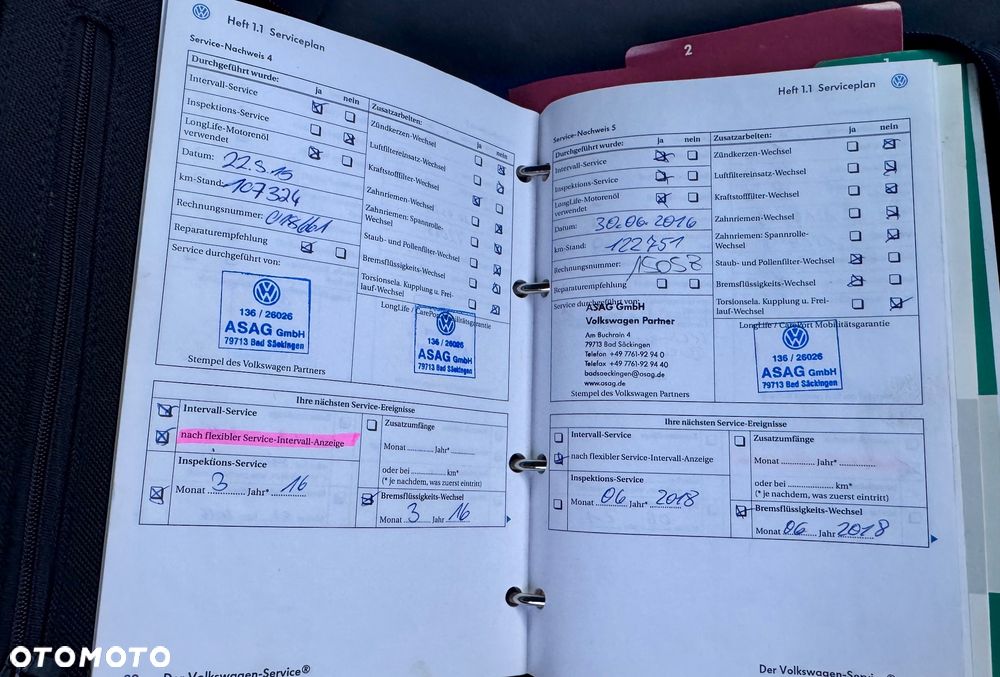 Heft 1.1 Serviceplan
Service-Nachweis 4
Durchgeführt wurde:
ja nein
Intervall-Service
Inspektions-Service
LongLife-Motorenöl
verwendet
Datum: 22.3.15
km-Stand: 107324
Rechnungsnummer:
Reparaturempfehlung
Service durchgeführt von:
136 / 26026
ASAG GmbH
79713 Bad Säckingen
Stempel des Volkswagen Partners
Zusatzarbeiten:
ja nein
Zündkerzen-Wechsel
Luftfiltereinsatz-Wechsel
Kraftstofffilter-Wechsel
Zahnriemen-Wechsel
Zahnriemen: Spannrolle-
Wechsel
Staub- und Pollenfilter-Wechsel
Bremsflüssigkeits-Wechsel
Torsionsela. Kupplung u. Frei-
lauf-Wechsel
LongLife / CarePort Mobilitätsgarantie
136 / 26026
ASAG GmbH
79713 Bad Säckingen
Ihre nächsten Service-Ereignisse
Intervall-Service
nach flexibler Service-Intervall-Anzeige
Inspektions-Service
Monat 3 Jahr* 16
Zusatzumfänge
Monat ............ Jahr* ............
oder bei ............ km*
(* je nachdem, was zuerst eintritt)
Bremsflüssigkeits-Wechsel
Monat 3 Jahr 16
Der Volkswagen-Service®
2
1
Heft 1.1 Serviceplan
Service-Nachweis 5
Durchgeführt wurde:
ja nein
Intervall-Service
Inspektions-Service
LongLife-Motorenöl
verwendet
Datum: 30.06.2016
km-Stand: 122751
Rechnungsnummer: 15058
Reparaturempfehlung
Service durchgeführt von:
ASAG GmbH
Volkswagen Partner
Am Buchrain 4
79713 Bad Säckingen
Telefon +49 7761-92 94 0
Telefax +49 7761-92 94 40
badsaeckingen@asag.de
www.asag.de
Stempel des Volkswagen Partners
Zusatzarbeiten:
ja nein
Zündkerzen-Wechsel
Luftfiltereinsatz-Wechsel
Kraftstofffilter-Wechsel
Zahnriemen-Wechsel
Zahnriemen: Spannrolle-
Wechsel
Staub- und Pollenfilter-Wechsel
Bremsflüssigkeits-Wechsel
Torsionsela. Kupplung u. Frei-
lauf-Wechsel
LongLife / CarePort Mobilitätsgarantie
136 / 26026
ASAG GmbH
79713 Bad Säckingen
Ihre nächsten Service-Ereignisse
Intervall-Service
nach flexibler Service-Intervall-Anzeige
Inspektions-Service
Monat 06 Jahr* 2018
Zusatzumfänge
Monat ............ Jahr* ............
oder bei ............ km*
(* je nachdem, was zuerst eintritt)
Bremsflüssigkeits-Wechsel
Monat 06 Jahr 2018
Der Volkswagen-Service
OTOMOTO